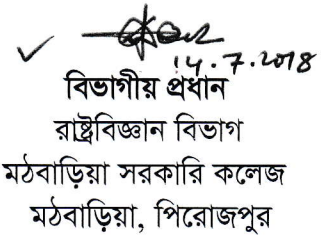 14.7.2018
বিভাগীয় প্রধান
রাষ্ট্রবিজ্ঞান বিভাগ
মঠবাড়িয়া সরকারি কলেজ
মঠবাড়িয়া, পিরোজপুর